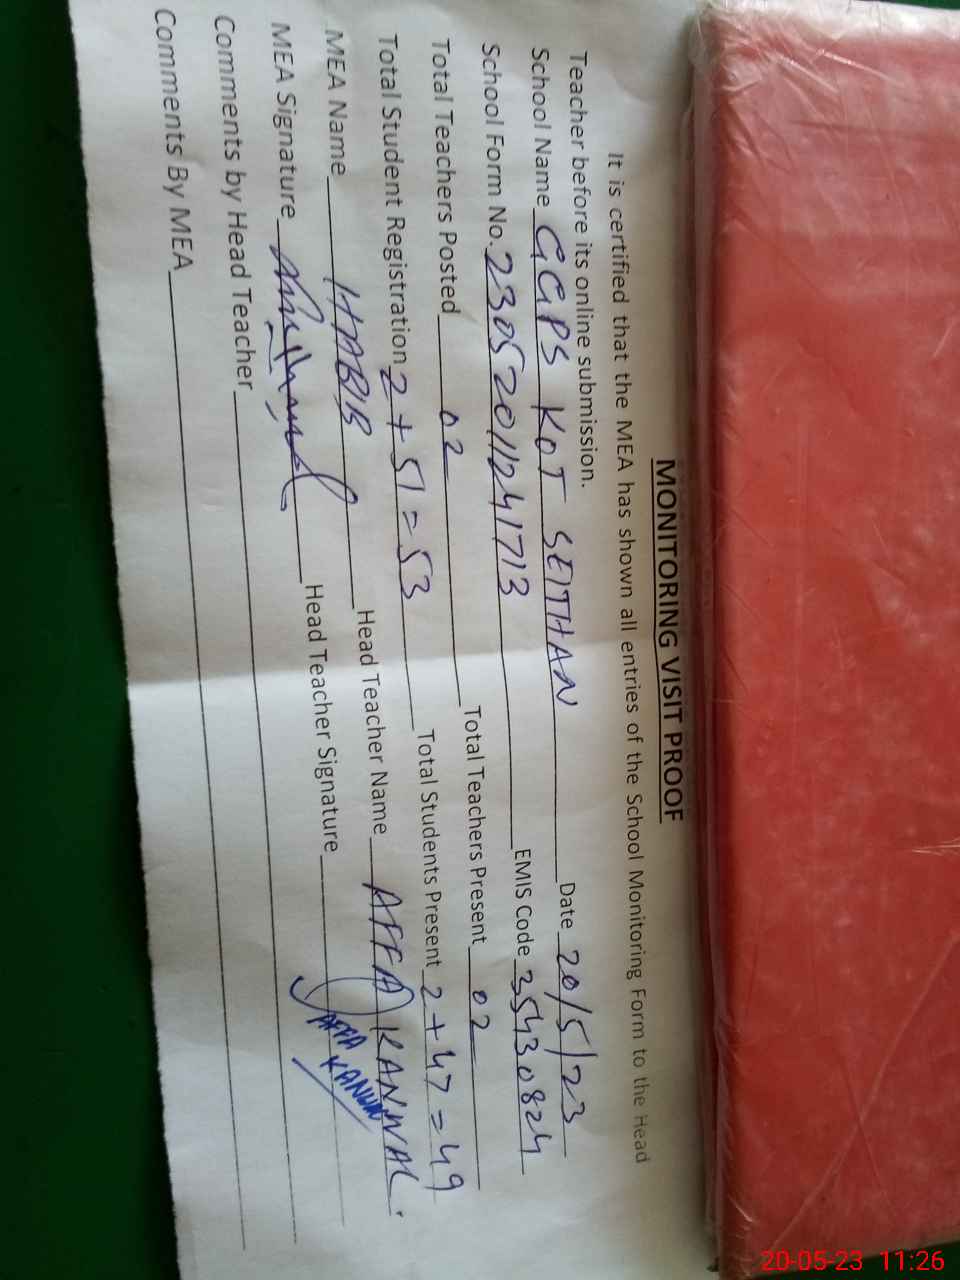 MONITORING VISIT PROOF
It is certified that the MEA has shown all entries of the School Monitoring Form to the Head
Teacher before its online submission.
School Name GGPS KOT SEITHAN Date 20/5/23
School Form No. 23052011241713 EMIS Code 35430824
Total Teachers Posted 02 Total Teachers Present 02
Total Student Registration 2+51=53 Total Students Present 2+47=49
MEA Name HABIB Head Teacher Name AFFA KANWAL.
MEA Signature Head Teacher Signature AFFA KANWAL
Comments by Head Teacher
Comments By MEA
20-05-23 11:26